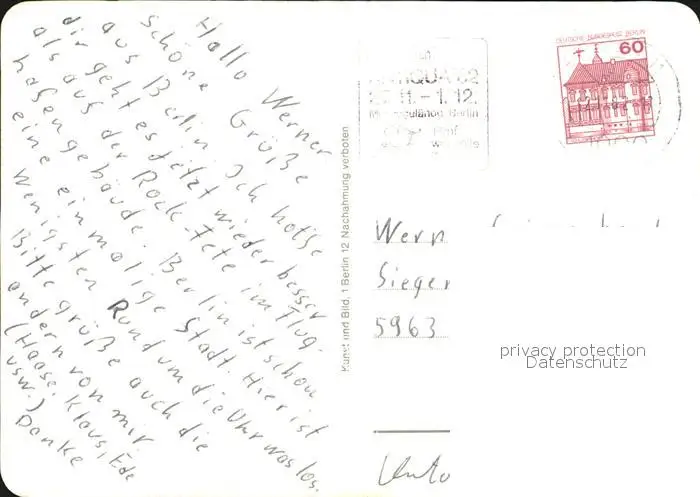 Hallo Werner
Schöne Grüße
aus Berlin. Ich hoffe
dir geht es jetzt wieder besser
als aus der Rock-Fete im Flug-
hafengebäude. Berlin ist schon
eine einmalige Stadt. Hier ist
wenigsten Rund um die Uhr was los.
Bitte grüße auch die
andern von mir
(Haase, Klaus, Ede
usw.)
Danke
Kunst und Bild, 1 Berlin 12 Nachahmung verboten
27.11. - 1.12.
Berlin
DEUTSCHE BUNDESPOST BERLIN
60
Wern
Sieger
5963
privacy protection
Datenschutz